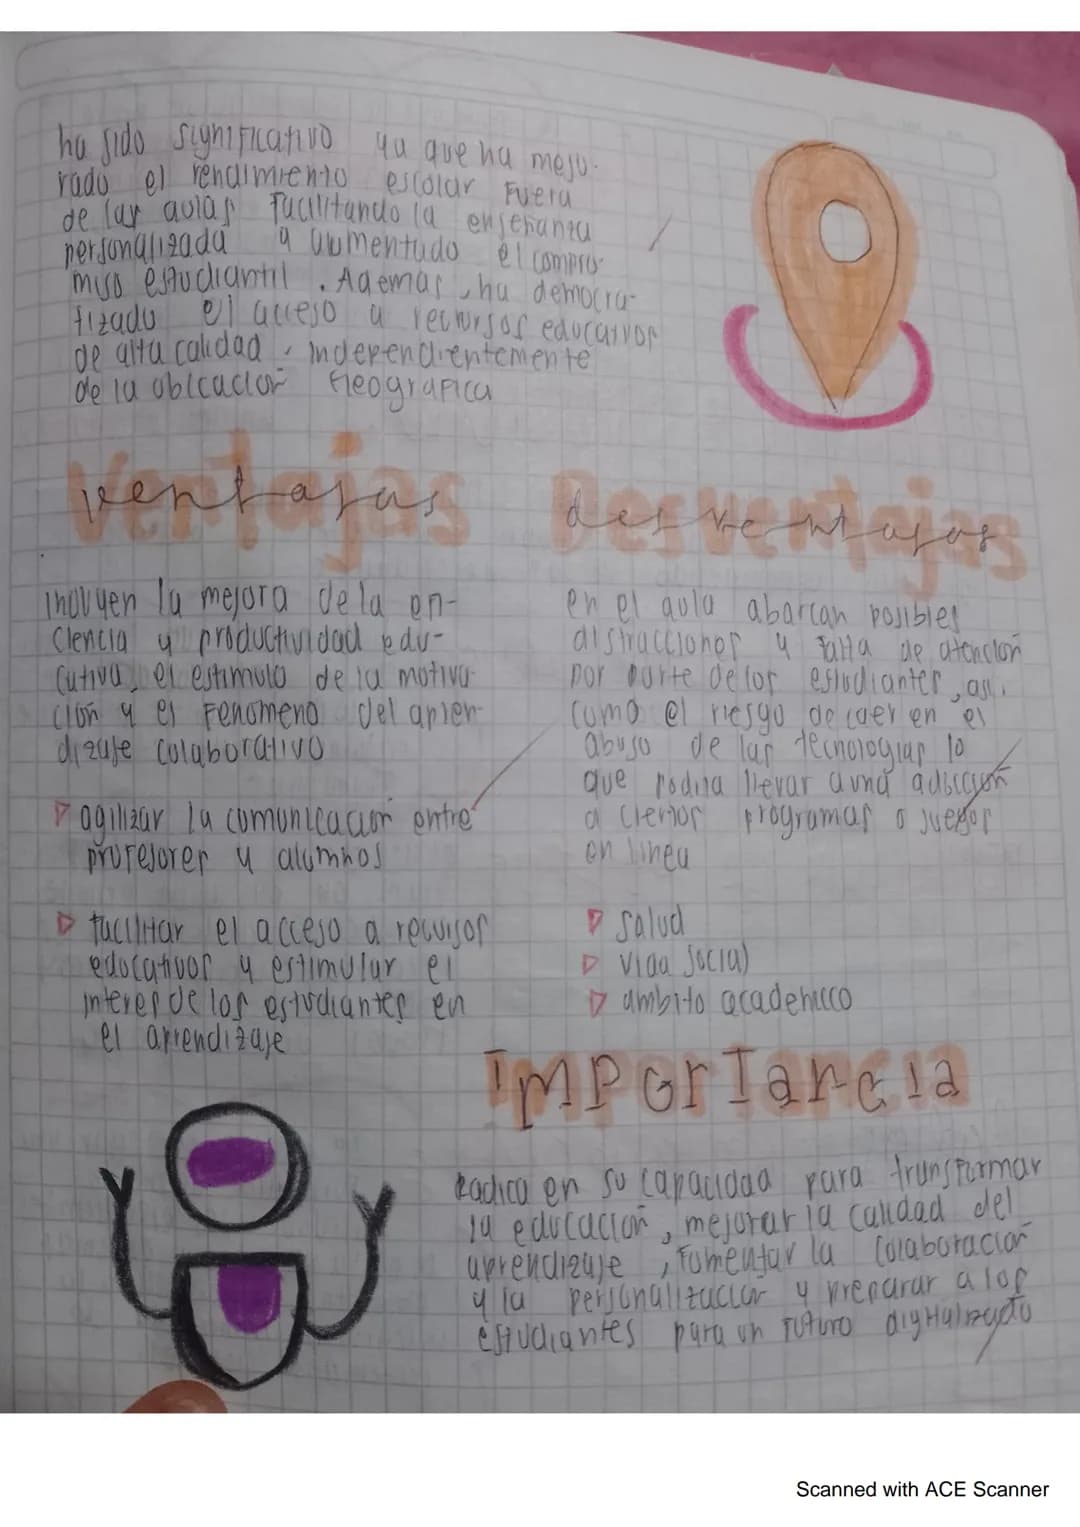 ha sido significativo ya que ha mejo-
rado el rendimiento escolar Fuera
de las aulas facilitando la enseñanza
personalizada y aumentado el compro-
miso estudiantil. Ademas, ha democra-
tizado el acceso a recursos educativos
de alta calidad, independientemente
de la ubicación Geografica
ventajas
incluyen la mejora de la en-
ciencia y productividad edu-
cativa, el estimulo de la motiva
ción y el Fenomeno del apren-
dizaje colaborativo
agilizar la comunicación entre
profesores y alumnos
facilitar el acceso a recursos
educativos y estimular el
interes de los estudiantes en
el aprendizaje
desventajas
en el aula abarcan posibles
distracciones y falta de atención
por parte de los estudiantes, asi
como el riesgo de caer en el
abuso de las tecnologias lo
que podria llevar a una adicción
a ciertos programas o juegos
en linea
salud
vida social
ambito academicco
Importancia
Radica en su capacidad para transformar
la educación, mejorar la calidad del
aprendizaje, Fomentar la colaboración
y la personalización y preparar a los
estudiantes para un futuro digitalizado
Scanned with ACE Scanner